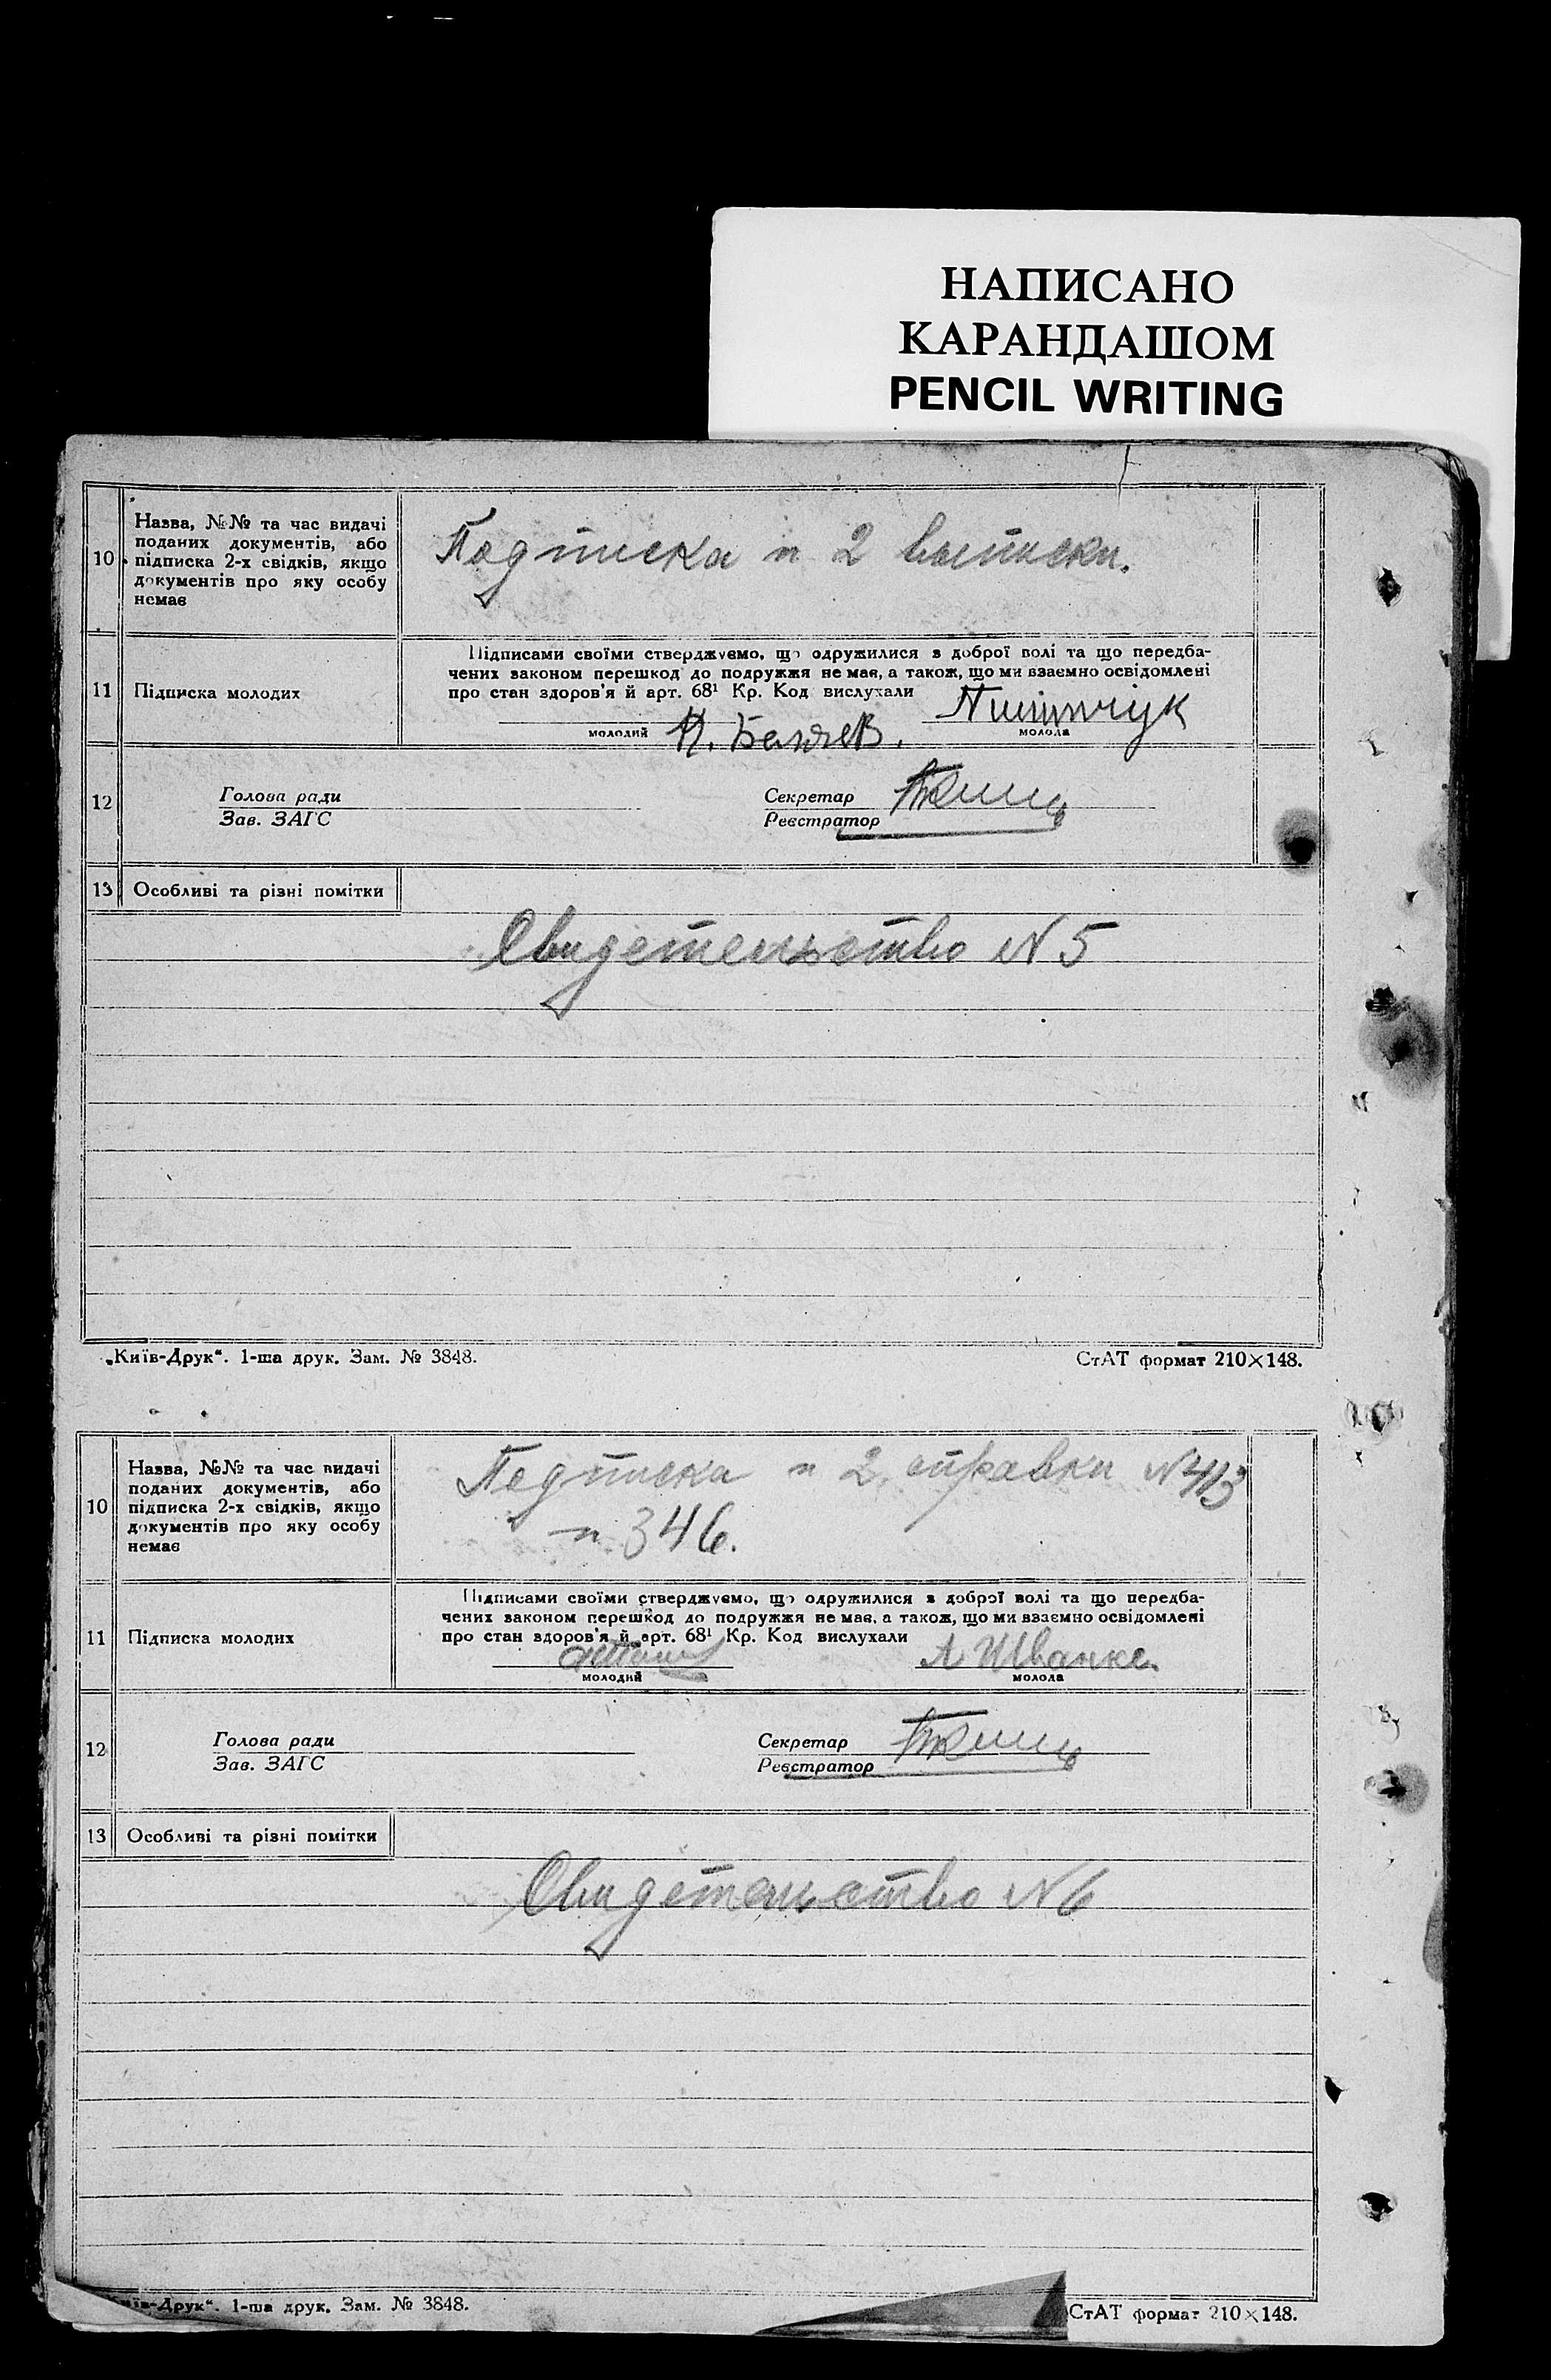 НАПИСАНО
КАРАНДАШОМ
PENCIL WRITING
10 Назва, №№ та час видачі
поданих документів, або
підписка 2-х свідків, якщо
документів про яку особу
немає
Подписка и 2 выписки.
11 Підписка молодих
Підписами своїми стверджуємо, що одружилися з доброї волі та що передба-
чених законом перешкод до подружжя не має, а також, що ми взаємно освідомлені
про стан здоров'я й арт. 68¹ Кр. Код вислухали
молодий Беляев. молода
12 Голова ради Секретар
Зав. ЗАГС Реєстратор
13 Особливі та різні помітки
Свидетельство N 5
„Київ-Друк“. 1-ша друк. Зам. № 3848. СтАТ формат 210×148.
10 Назва, №№ та час видачі
поданих документів, або
підписка 2-х свідків, якщо
документів про яку особу
немає
Подписка и 2 справки N 413
и 346.
11 Підписка молодих
Підписами своїми стверджуємо, що одружилися з доброї волі та що передба-
чених законом перешкод до подружжя не має, а також, що ми взаємно освідомлені
про стан здоров'я й арт. 68¹ Кр. Код вислухали
молодий молода
12 Голова ради Секретар
Зав. ЗАГС Реєстратор
13 Особливі та різні помітки
Свидетельство N 6
їв-Друк“. 1-ша друк. Зам. № 3848. СтАТ формат 210×148.